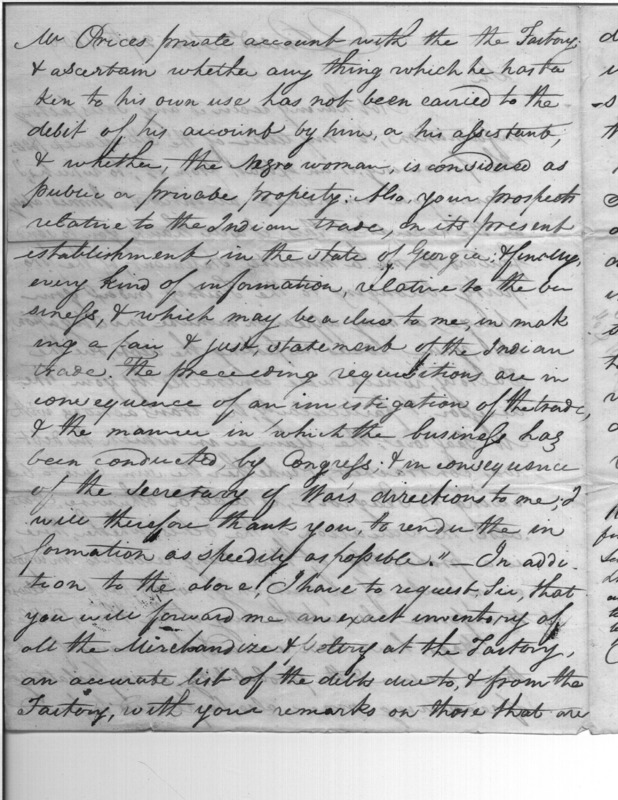 Mr Prices private account with the the Factory,
& ascertain whether any thing which he has ta
ken to his own use has not been carried to the
debit of his account by him, or his assistant;
& whether, the Negro woman, is considered as
public or private property. Also, your prospects
relative to the Indian trade, on its present
establishment, in the state of Georgia; & finally,
every kind of information, relative to the bu
siness, & which may be a clue to me, in mak
ing a fair & just, statement of the Indian
trade. The preceeding requisitions are in
consequence of an investigation of the trade,
& the manner in which the business has
been conducted, by Congress; & in consequence
of the Secretary of War's directions to me; I
will therefore thank you, to render the in
formation as speedily as possible." — In addi
tion to the above, I have to request, Sir, that
you will forward me an exact inventory of
all the Merchandize, & at the Factory,
an accurate list of the debts due to, & from the
Factory, with your remarks on those that are